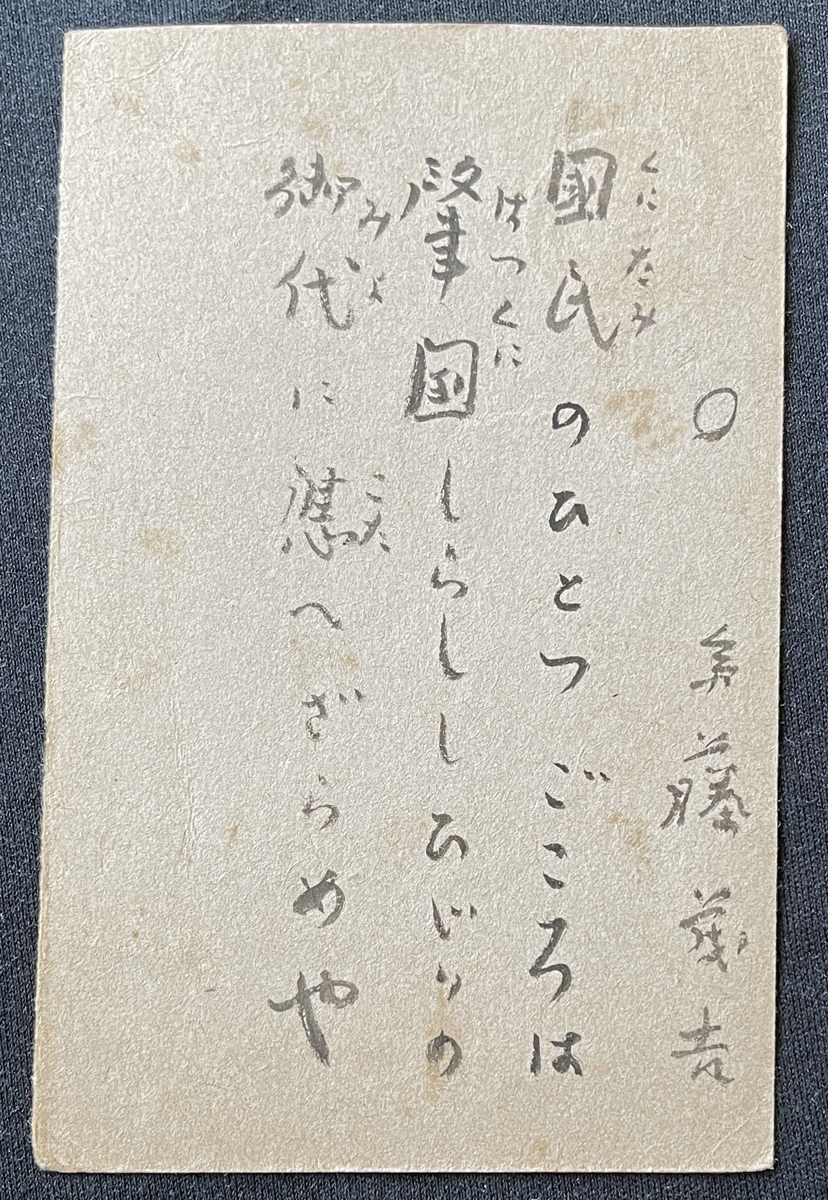 ○ 斎藤茂吉
くにたみ
國民のひとつごころは
はつくに
肇國しらししひじりの
みよ こた
御代に應へざらめや